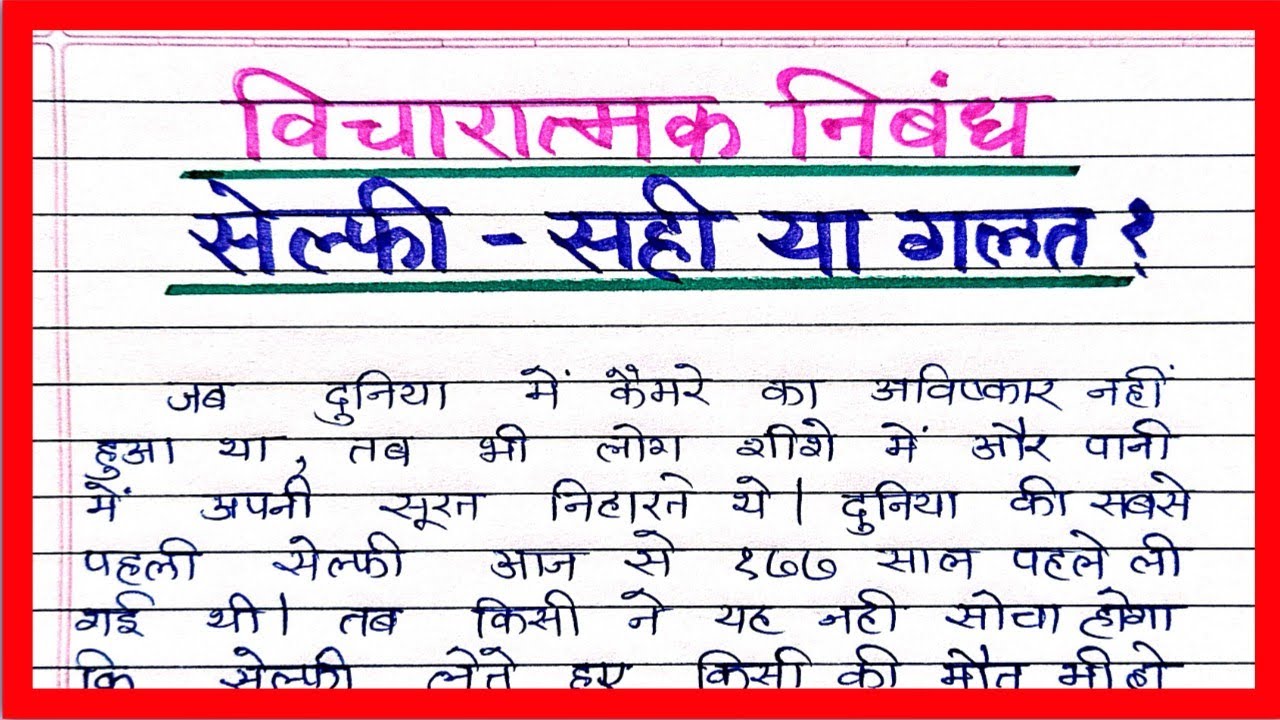 विचारात्मक निबंध
सेल्फी - सही या गलत ?
जब दुनिया में कैमरे का अविष्कार नहीं
हुआ था, तब भी लोग शीशे में और पानी
में अपनी सूरत निहारते थे। दुनिया की सबसे
पहली सेल्फी आज से १७७ साल पहले ली
गई थी। तब किसी ने यह नही सोचा होगा
कि सेल्फी लेते हुए किसी की मौत भी हो